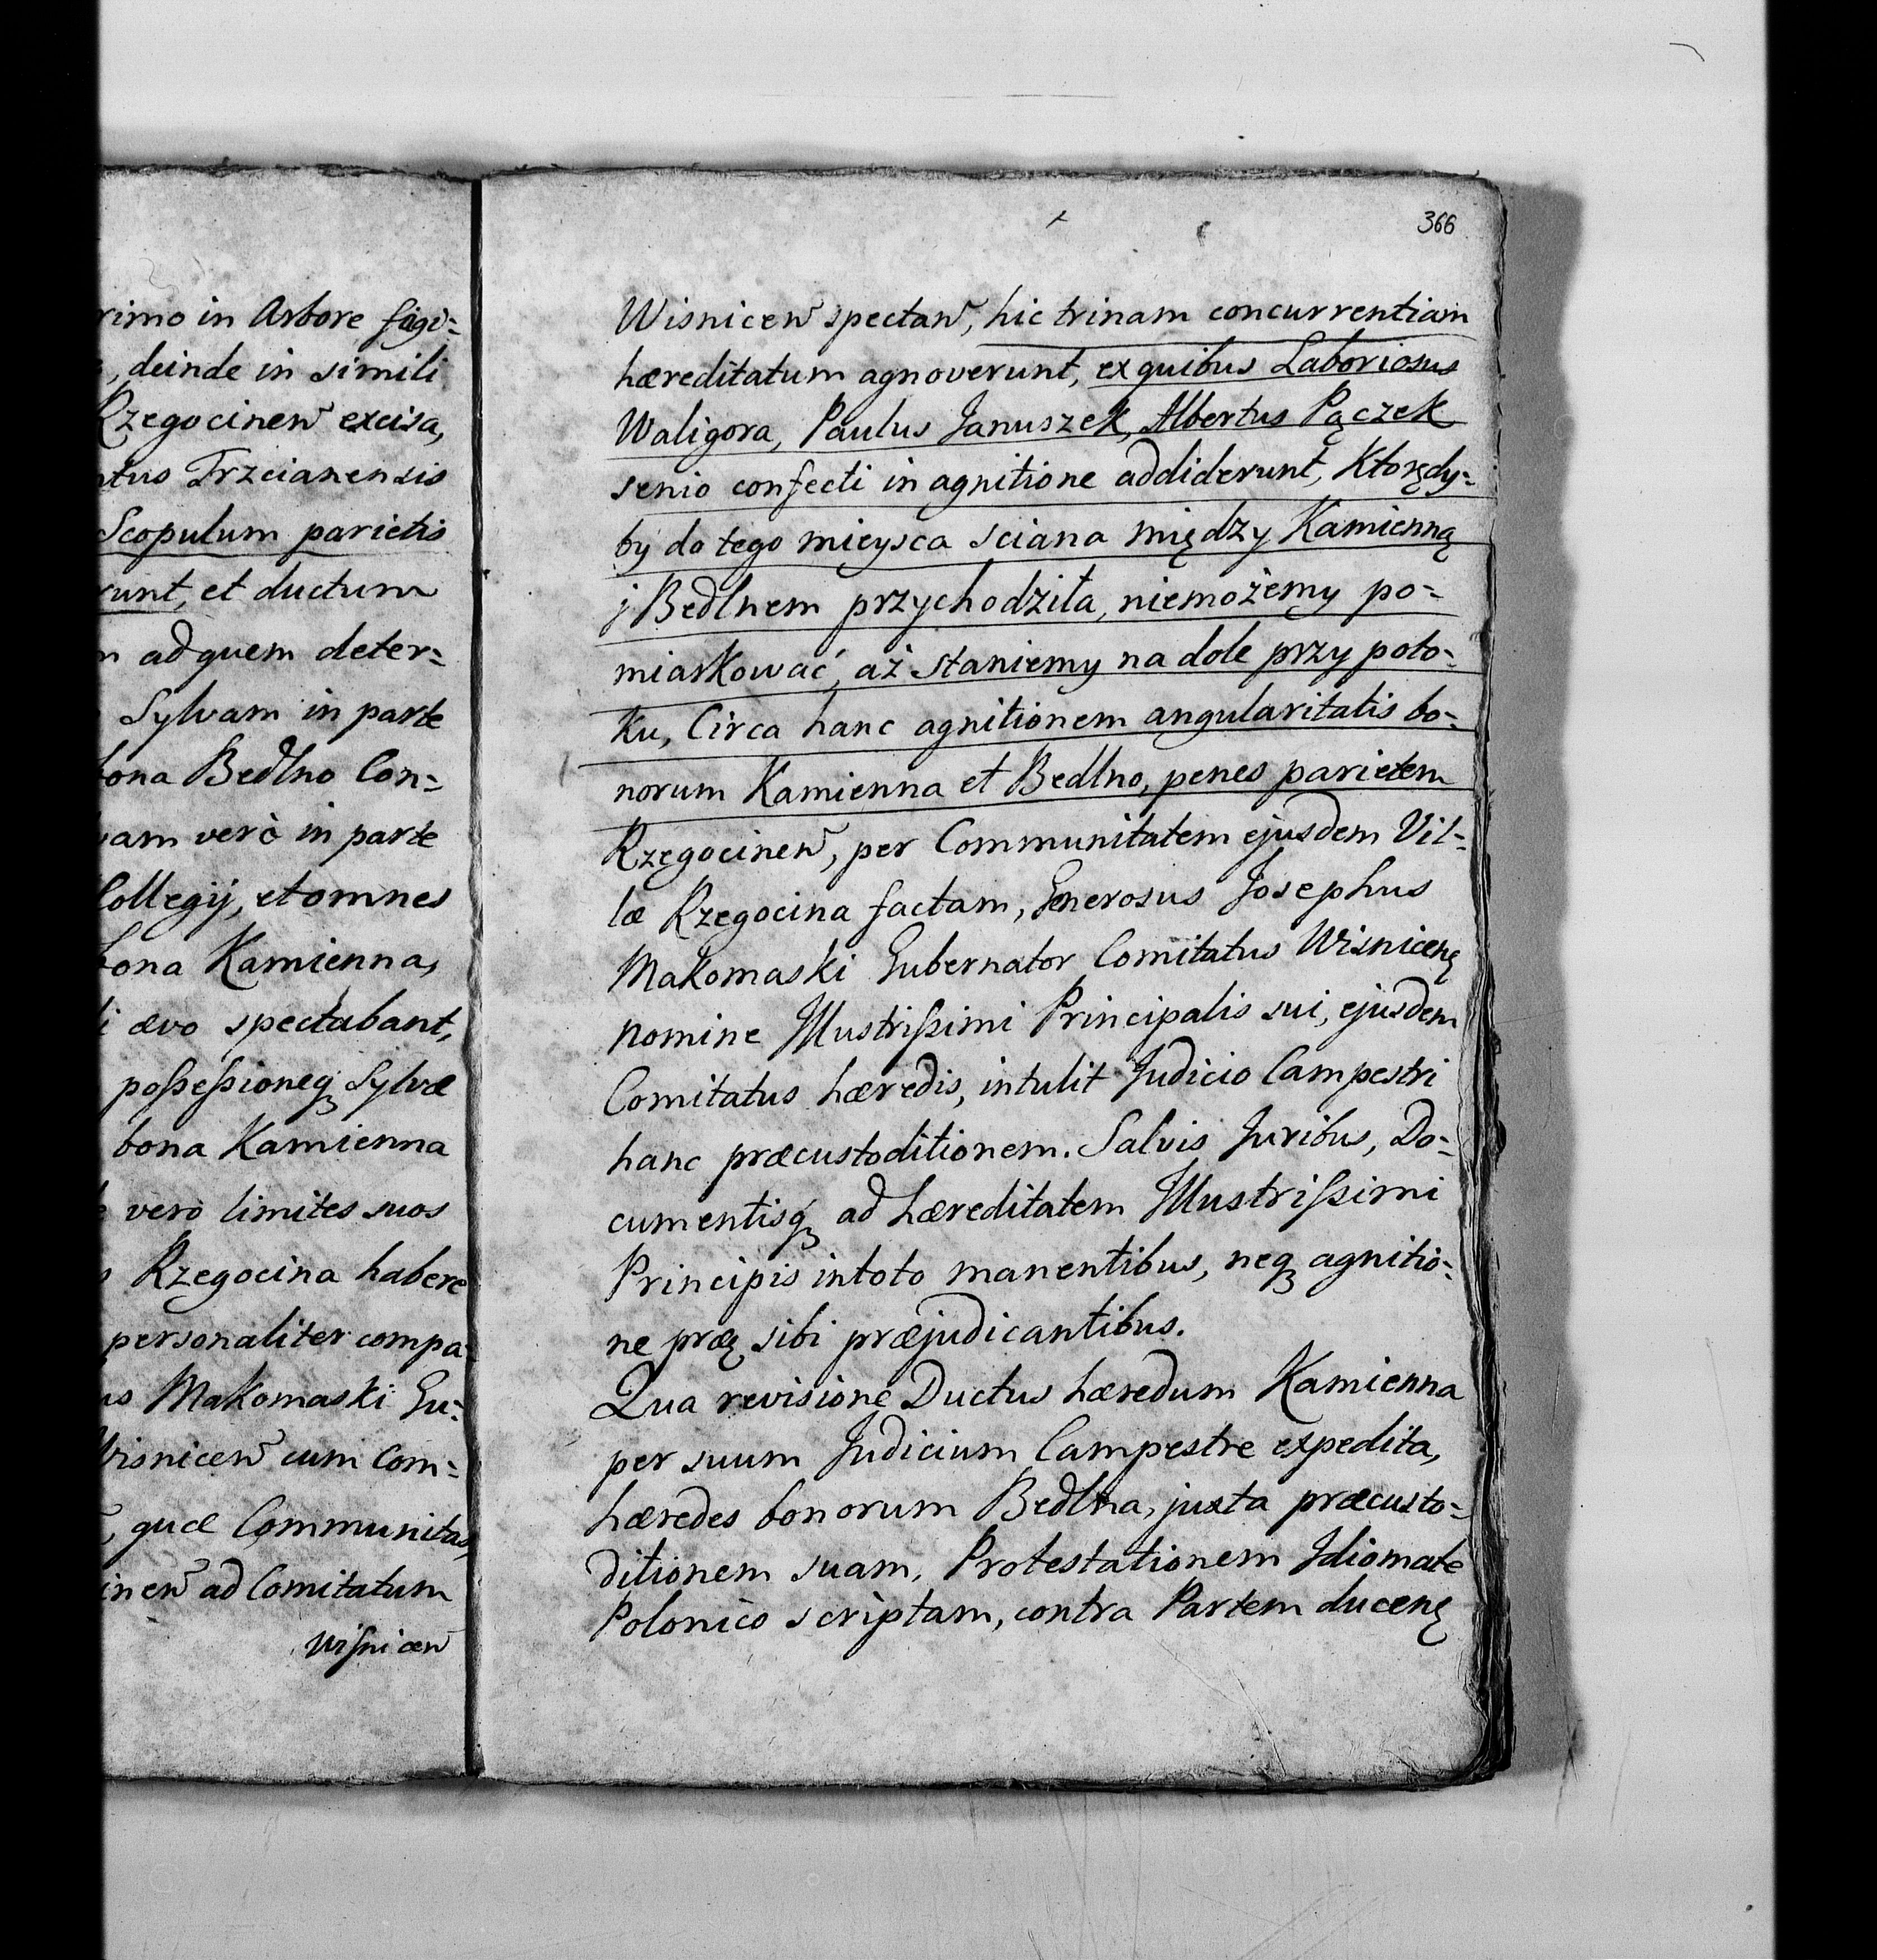 rimo in Arbore fagi=
, deinde in simili
Rzegocinen̄ excisa,
ntus Trzcianensis
Scopulum parietis
runt, et ductum
ad quem deter=
Sylvam in parte
bona Bedlno Con=
vam verò in parte
Collegij, et omnes
bona Kamienna,
i ævo spectabant,
poſseſsioneq3 Sylvæ
bona Kamienna
verò limites suos
Rzegocina habere
personaliter compa=
us Makomaski Gu=
Wisnicen̄ cum Com=
, quæ Communitas
inen̄ ad Comitatum
Wiſnicen̄
366
Wisnicen̄ spectan̄, hic trinam concurrentiam
hæreditatum agnoverunt, ex quibus Laboriosus
Waligora, Paulus Januszek, Albertus Pączek
senio confecti in agnitione addiderunt, Ktorędy=
by do tego mieysca sciana między Kamienną
j Bedlnem przychodziła, niemożemy po=
miarkować, aż staniemy na dole przy poto=
ku, Circa hanc agnitionem angularitatis bo=
norum Kamienna et Bedlno, penes parietem
Rzegocinen̄, per Communitatem ejusdem Vil=
læ Rzegocina factam, Generosus Josephus
Makomaski Gubernator Comitatus Wisnicenę
nomine Illustriſsimi Principalis sui, ejusdem
Comitatus hæredis, intulit Judicio Campestri
hanc præcustoditionem. Salvis Juribus, Do=
cumentisq3 ad hæreditatem Illustriſsimi
Principis in toto manentibus, neq3 agnitio=
ne præę sibi præjudicantibus.
Qua revisione Ductus hæredum Kamienna
per suum Judicium Campestre expedita,
hæredes bonorum Bedlna, juxta præcusto=
ditionem suam, Protestationem Idiomate
Polonico scriptam, contra Partem ducenę